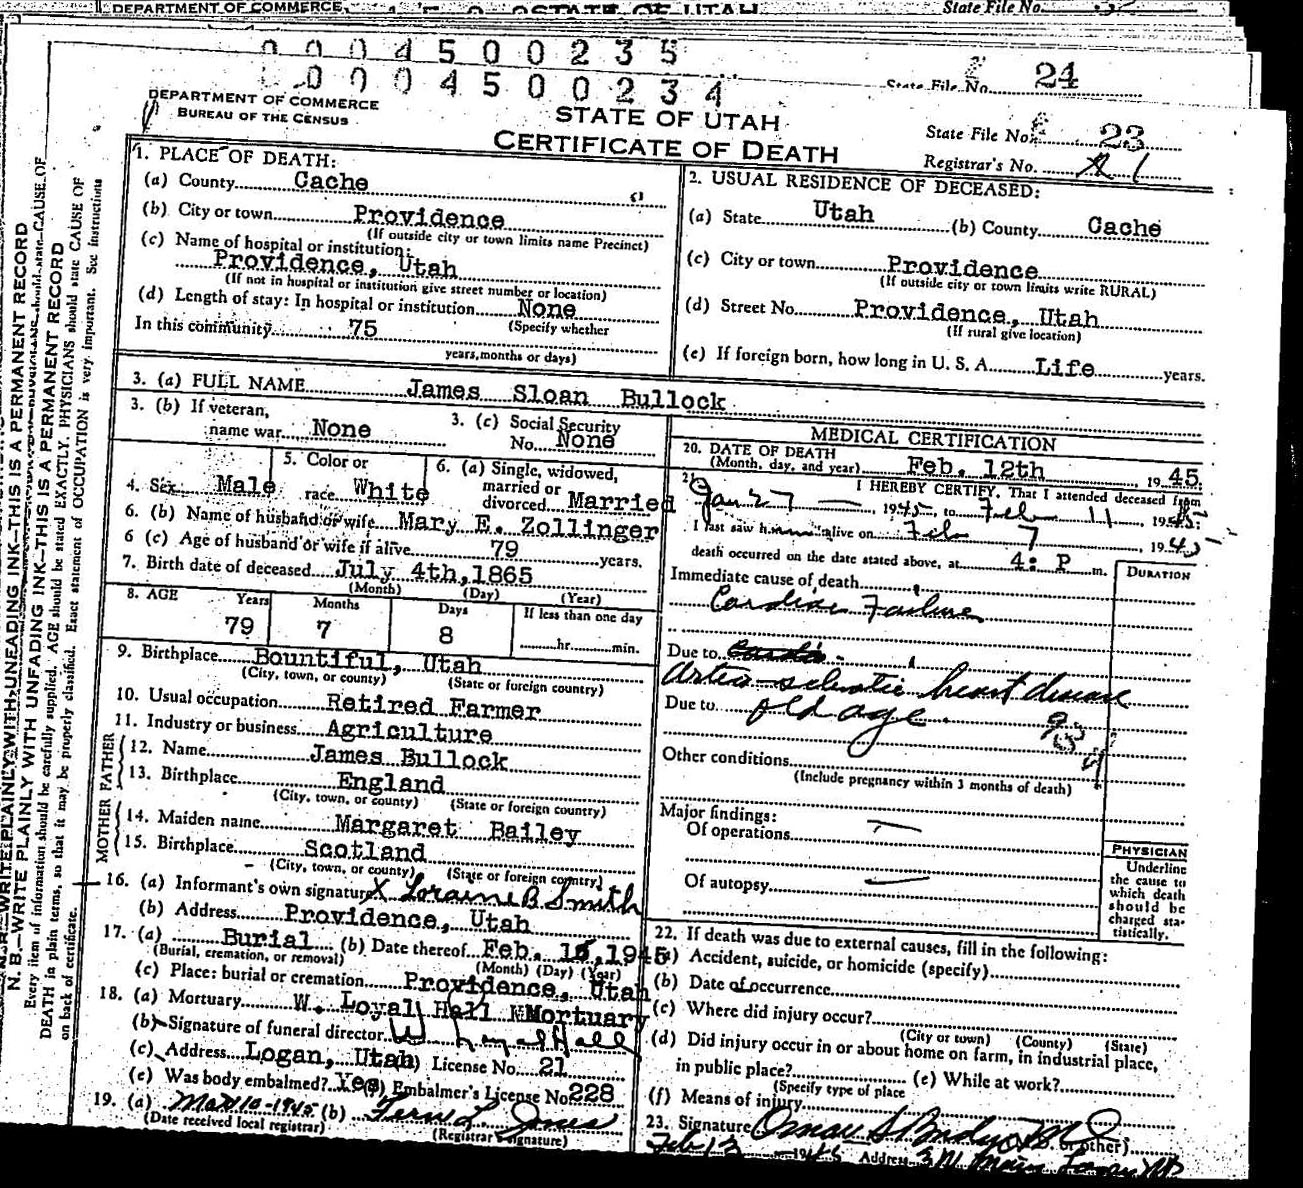 DEPARTMENT OF COMMERCE
STATE OF UTAH
State File No.
0004500235
0004500234
State File No. 24
DEPARTMENT OF COMMERCE
BUREAU OF THE CENSUS
STATE OF UTAH
CERTIFICATE OF DEATH
State File No. 23
Registrar's No.
N. B.—WRITE PLAINLY WITH UNFADING INK—THIS IS A PERMANENT RECORD
Every item of information should be carefully supplied. AGE should be stated EXACTLY. PHYSICIANS should state CAUSE OF
DEATH in plain terms, so that it may be properly classified. Exact statement of OCCUPATION is very important. See instructions
on back of certificate.
1. PLACE OF DEATH:
(a) County Cache
(b) City or town Providence
(If outside city or town limits name Precinct)
(c) Name of hospital or institution:
Providence, Utah
(If not in hospital or institution give street number or location)
(d) Length of stay: In hospital or institution None
(Specify whether
In this community 75
years, months or days)
2. USUAL RESIDENCE OF DECEASED:
(a) State Utah (b) County Cache
(c) City or town Providence
(If outside city or town limits write RURAL)
(d) Street No. Providence, Utah
(If rural give location)
(e) If foreign born, how long in U. S. A. Life years.
3. (a) FULL NAME James Sloan Bullock
3. (b) If veteran,
name war None
3. (c) Social Security
No. None
4. Sex Male
5. Color or
race White
6. (a) Single, widowed,
married or
divorced Married
6. (b) Name of husband or wife Mary E. Zollinger
6 (c) Age of husband or wife if alive 79 years.
7. Birth date of deceased July 4th, 1865
(Month) (Day) (Year)
8. AGE Years Months Days If less than one day
79 7 8 hr. min.
9. Birthplace Bountiful, Utah
(City, town, or county) (State or foreign country)
10. Usual occupation Retired Farmer
11. Industry or business Agriculture
FATHER
12. Name James Bullock
13. Birthplace England
(City, town, or county) (State or foreign country)
MOTHER
14. Maiden name Margaret Bailey
15. Birthplace Scotland
(City, town, or county) (State or foreign country)
16. (a) Informant's own signature X Loraine B Smith
(b) Address Providence, Utah
17. (a) Burial (b) Date thereof Feb. 15, 1945
(Burial, cremation, or removal) (Month) (Day) (Year)
(c) Place: burial or cremation Providence, Utah
18. (a) Mortuary W. Loyal Hall Mortuary
(b) Signature of funeral director W Loyal Hall
(c) Address Logan, Utah License No. 21
(e) Was body embalmed? Yes (f) Embalmer's License No. 228
19. (a) Mar 10-1945 (b) Fern L. Jones
(Date received local registrar) (Registrar's signature)
MEDICAL CERTIFICATION
20. DATE OF DEATH
(Month, day, and year) Feb. 12th 1945.
21. I HEREBY CERTIFY, That I attended deceased from
Jan 27 1945, to Feb 11, 1945
I last saw him alive on Feb 7, 1945
death occurred on the date stated above, at 4: P m.
DURATION
Immediate cause of death
Cardiac Failure
Due to
Arterio-sclerotic heart disease
Due to old age.
Other conditions
(Include pregnancy within 3 months of death)
Major findings:
Of operations —
Of autopsy —
PHYSICIAN
Underline
the cause to
which death
should be
charged sta-
tistically.
22. If death was due to external causes, fill in the following:
(a) Accident, suicide, or homicide (specify)
(b) Date of occurrence
(c) Where did injury occur?
(City or town) (County) (State)
(d) Did injury occur in or about home on farm, in industrial place,
in public place? (e) While at work?
(Specify type of place
(f) Means of injury
23. Signature Omar S Budge MD (M.D. or other)
Feb 13 1945 Address